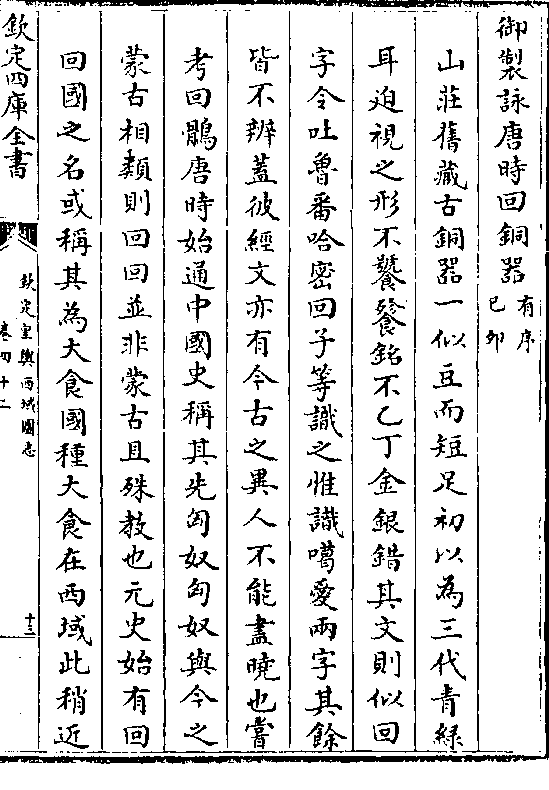 御製詠唐時回銅器有序已卯
山莊舊藏古銅器一似豆而短足初以為三代青綠
耳迫視之形不饕餮銘不乙丁金銀錯其文則似回
字令吐魯番哈密回子等識之惟識噶愛兩字其餘
皆不辨蓋彼經文亦有今古之異人不能盡曉也嘗
考回鶻唐時始通中國史稱其先匈奴匈奴與今之
蒙古相類則回回並非蒙古且殊教也元史始有回
回國之名或稱其為大食國種大食在西域此稍近
欽定四庫全書
欽定皇輿西域圖志
卷四十二
十三